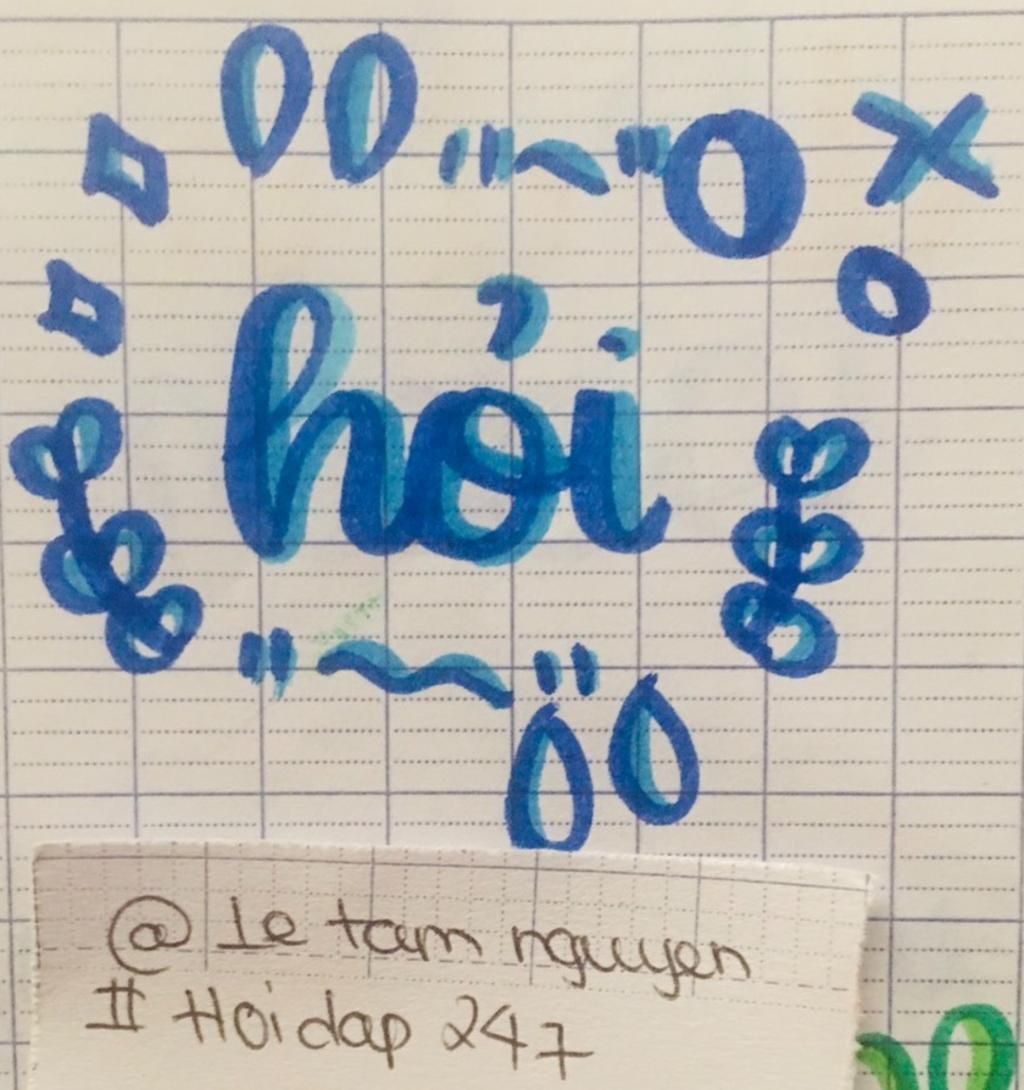 hỏi
@ Le tam nguyen
# Hoidap 247